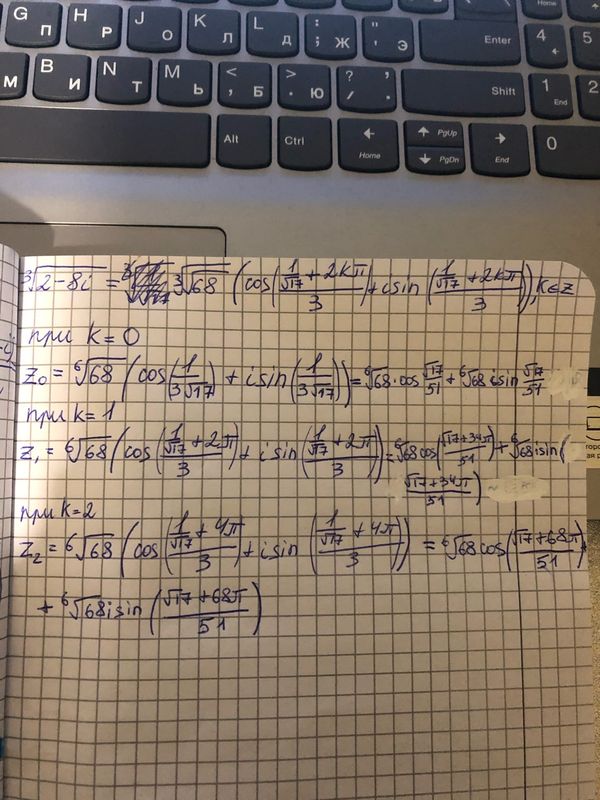 G П H Р J О K Л L Д : ; Ж " ' Э Enter Home 4 5
М B И N Т M Ь < , Б > . Ю ? / . Shift 1 End 2
Alt Ctrl ← Home ↑ PgUp ↓ PgDn → End 0
∛(2-8i) = ∛√68 (cos((1/√17 + 2kπ)/3) + isin((1/√17 + 2kπ)/3)), k∈z
при k=0
z₀ = ⁶√68 (cos(1/(3√17)) + isin(1/(3√17))) = ⁶√68 · cos √17/51 + ⁶√68 isin √17/51
при k=1
z₁ = ⁶√68 (cos((1/√17 + 2π)/3) + isin((1/√17 + 2π)/3)) = ⁶√68 cos((√17+34π)/51) + ⁶√68 isin(
(√17+34π)/51)
при k=2
z₂ = ⁶√68 (cos((1/√17 + 4π)/3) + isin((1/√17 + 4π)/3)) = ⁶√68 cos((√17+68π)/51)
+ ⁶√68 isin((√17+68π)/51)